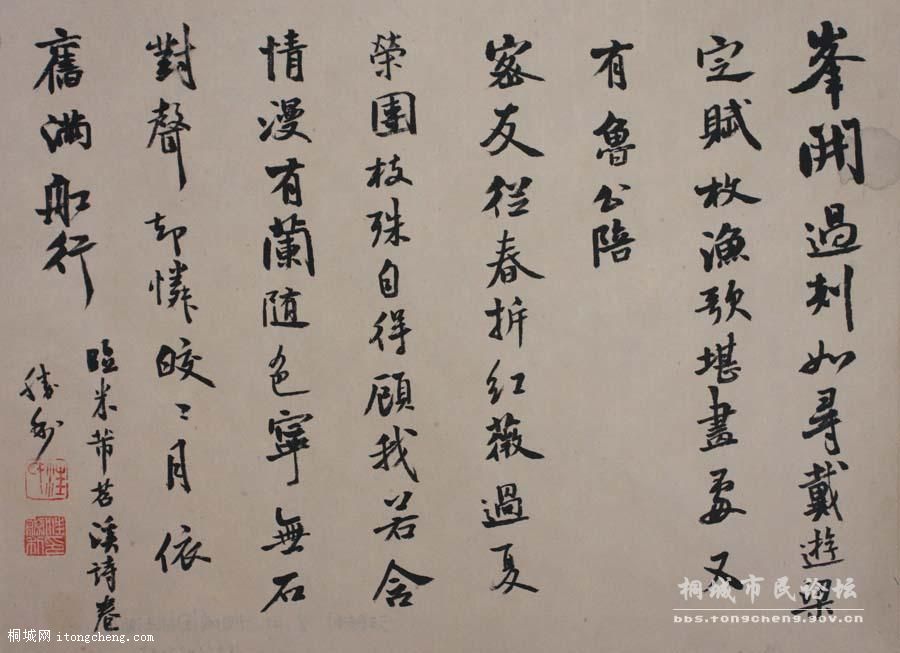 峯開過剡如尋戴遊梁
定賦枚漁歌堪畫處又
有魯公陪
密友從春拆紅薇過夏
榮團枝殊自得顧我若含
情漫有蘭隨色寧無石
對聲却憐皎〻月依
舊滿船行
臨米芾苕溪詩卷
桐城市民论坛
bbs.tongcheng.gov.cn
桐城网 itongcheng.com